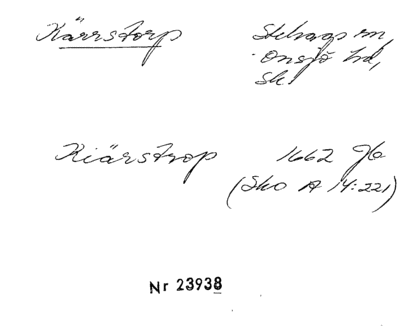 Kärrstorp Stehags sn,
Onsjö hd,
Sk
Kiärstrop 1662 Jb
(Sko A 14:221)
Nr 23938